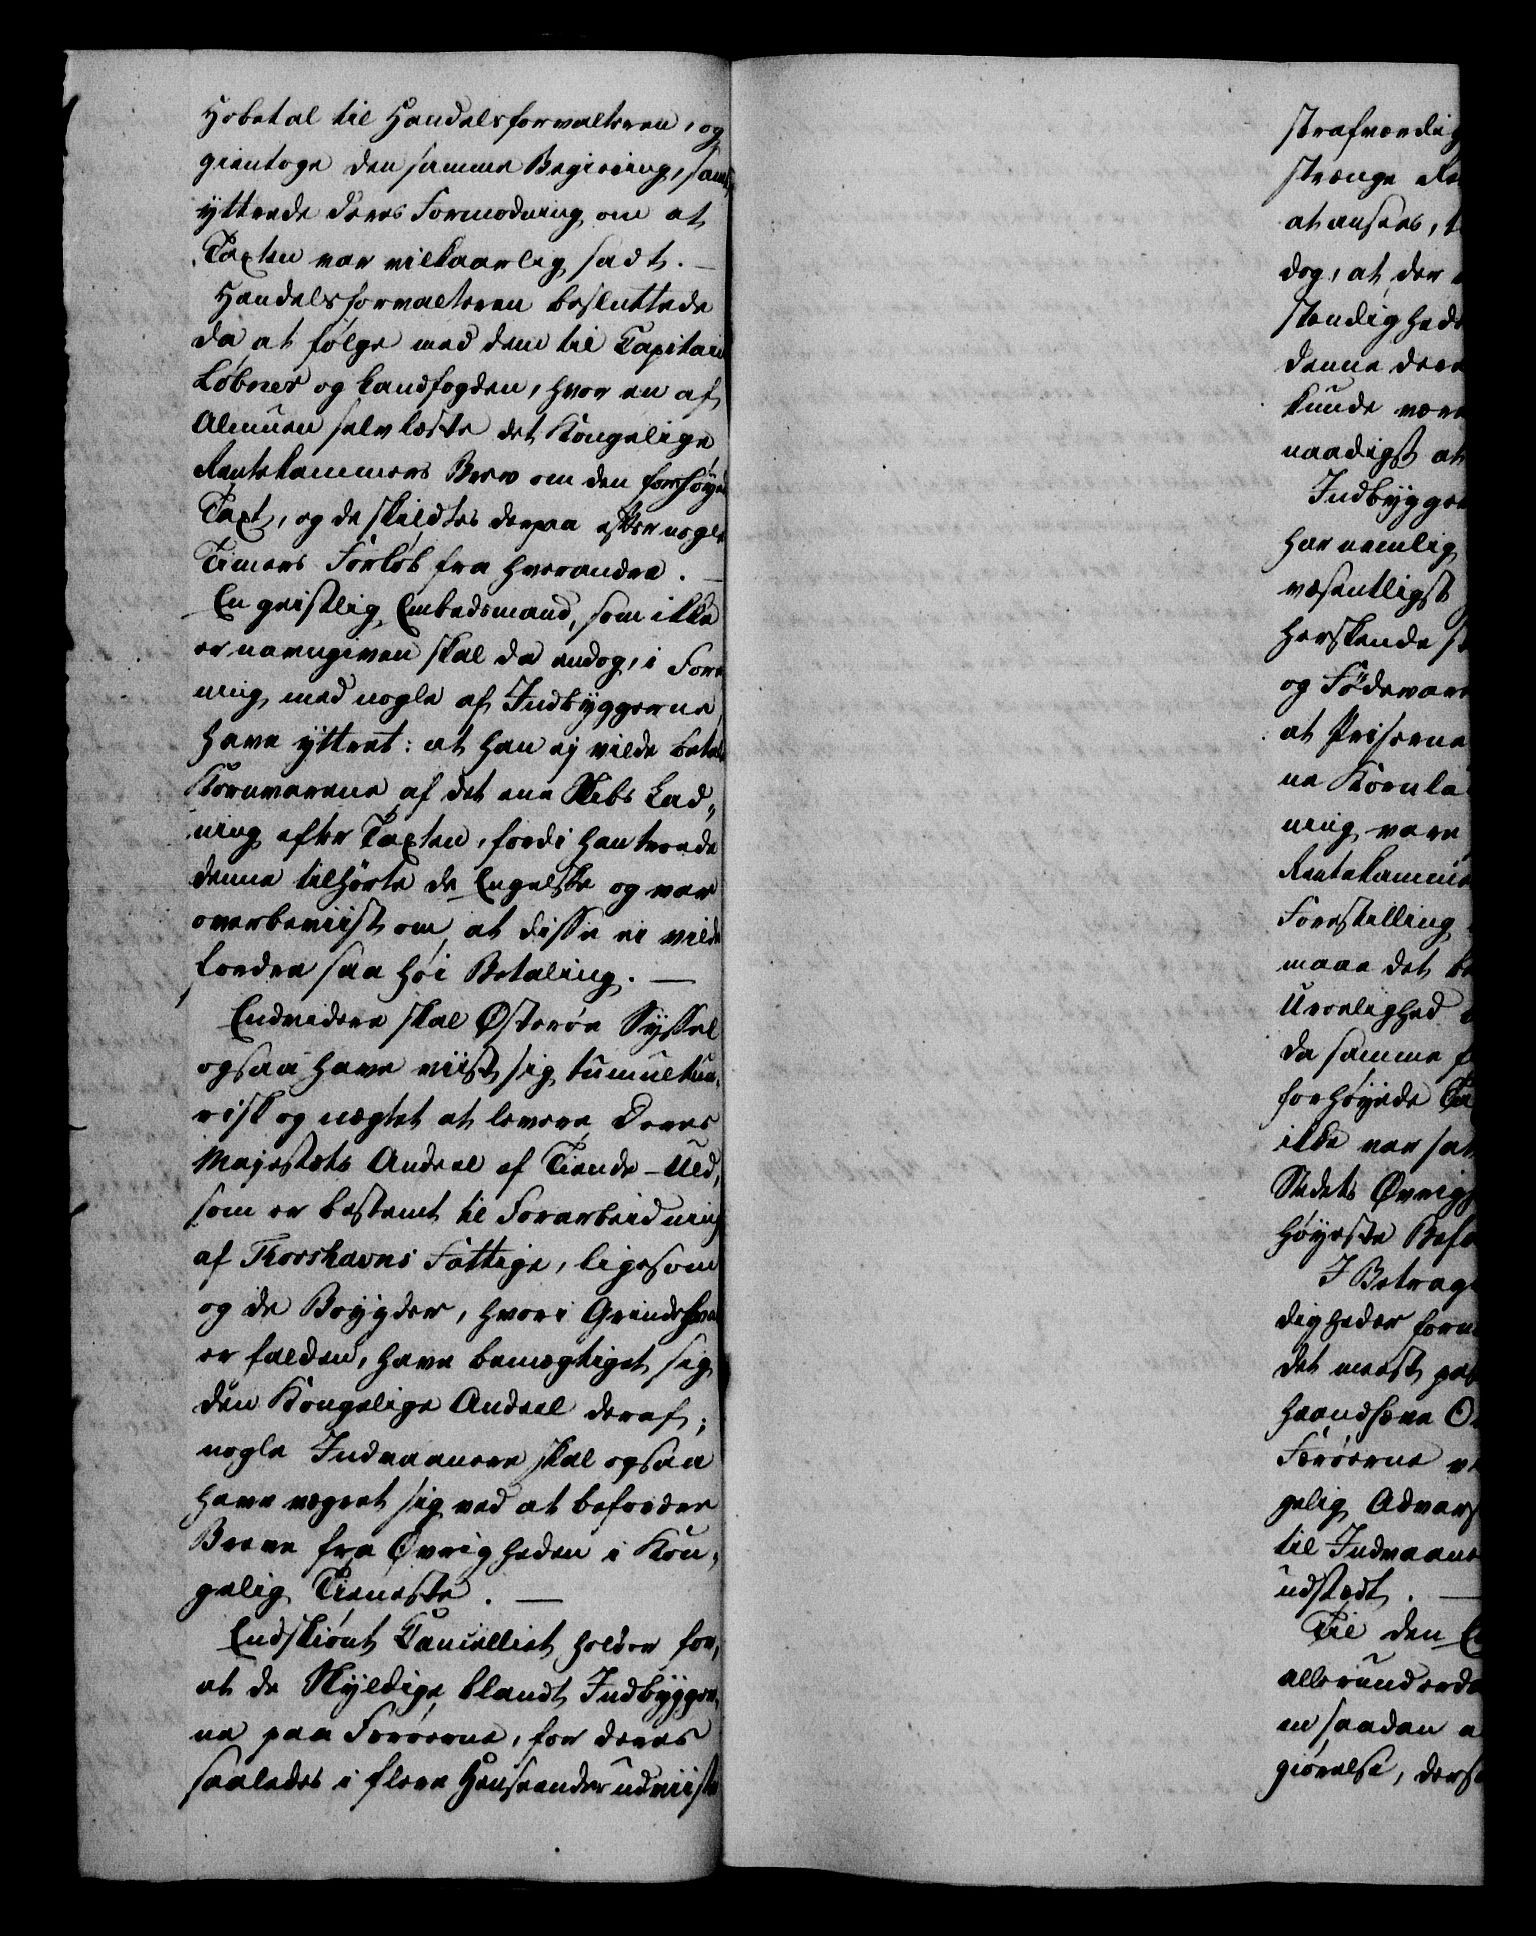 Hobetal til Handelsforvalteren, og
gientoge den samme Begiering, samt
yttrede deres Formodning om at
Taxten var vilkaarlig sadt. —
Handelsforvalteren besluttede
da at følge med dem til Capitain
Løbner og Landfogden, hvor en af
Almuen selv læste det Kongelige
Rentekammers Brev om den forhøyede
Taxt, og de skildtes derpaa efter nogle
Timers Forløb fra hverandre. —
En geistlig Embedsmand, som ikke
er navngiven skal da endog, i Fore-
ning med nogle af Indbyggerne
have yttret: at han ej vilde betale
Kornvarene af det ene Skibs Lad-
ning efter Taxten, fordi han troede
denne tilhørte de Engelske og var
overbeviist om, at disse ei vilde
fordre saa høi Betaling. —
Endvidere skal Østerøe Syssel
ogsaa have viist sig tumultua-
risk og nægtet at levere Deres
Majestæts Andeel af Tiende-Uld,
som er bestemt til Forarbeidning
af Thorshavns Fattige, ligesom
og de Bøygder, hvori Grindehval
er falden, have bemægtiget sig
den Kongelige Andeel deraf;
nogle Indvaanere skal ogsaa
have vægret sig ved at befordre
Breve fra Øvrigheden i Kon-
gelig Tieneste. —
Endskiønt Cancelliet holder for,
at de Skyldige blandt Indbygger-
ne paa Færøerne, for deres
saaledes i flere Henseender udviiste
strafværdig
strænge
at ansees,
dog, at der
stændighede
denne dere
kunde være
naadigst at
Indbygger
har nemlig
væsentligst
herskende
og Fødevare
at Priserne
ne Kornla
ning, vare
Rentekamme
Forestilling
maae det
Uroelighed
da samme
forhøyede
ikke var sat
Stedets Øvrigh
høyeste Befa
I Betragt
digheder form
det meest pas
haandhæve
Færøerne
gelig Advars
til Indvaane
udstædt. —
Til den
allerunderda
en saadan
giørelse, ders